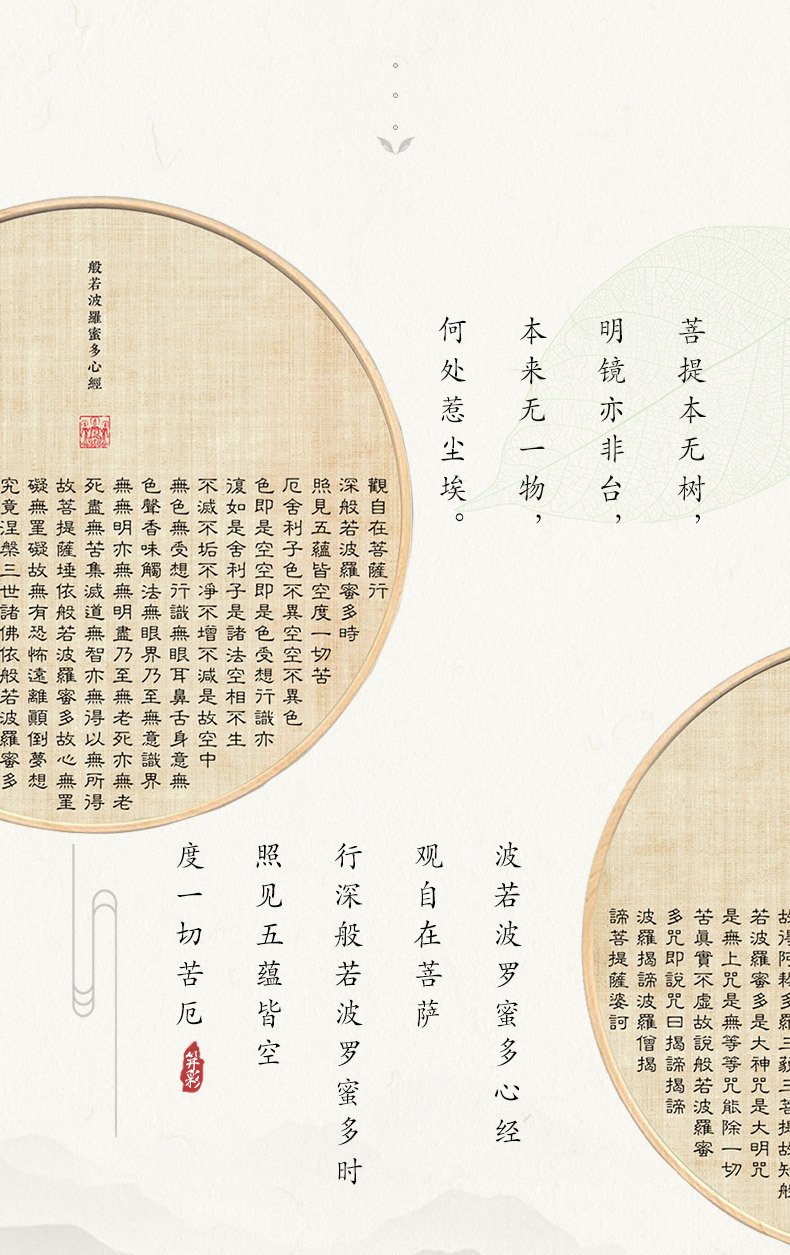 般若波羅蜜多心經
觀自在菩薩行
深般若波羅蜜多時
照見五蘊皆空度一切苦
厄舍利子色不異空空不異色
色即是空空即是色受想行識亦
復如是舍利子是諸法空相不生
不滅不垢不凈不增不減是故空中
無色無受想行識無眼耳鼻舌身意無
色聲香味觸法無眼界乃至無意識界
無無明亦無無明盡乃至無老死亦無老
死盡無苦集滅道無智亦無得以無所得
故菩提薩埵依般若波羅蜜多故心無罣
礙無罣礙故無有恐怖遠離顛倒夢想
究竟涅槃三世諸佛依般若波羅蜜多
菩提本无树，
明镜亦非台，
本来无一物，
何处惹尘埃。
波若波罗蜜多心经
观自在菩萨
行深般若波罗蜜多时
照见五蕴皆空
度一切苦厄
故得阿耨多羅三藐三菩提故知般
若波羅蜜多是大神咒是大明咒
是無上咒是無等等咒能除一切
苦眞實不虛故說般若波羅蜜
多咒即說咒曰揭諦揭諦
波羅揭諦波羅僧揭
諦菩提薩婆訶